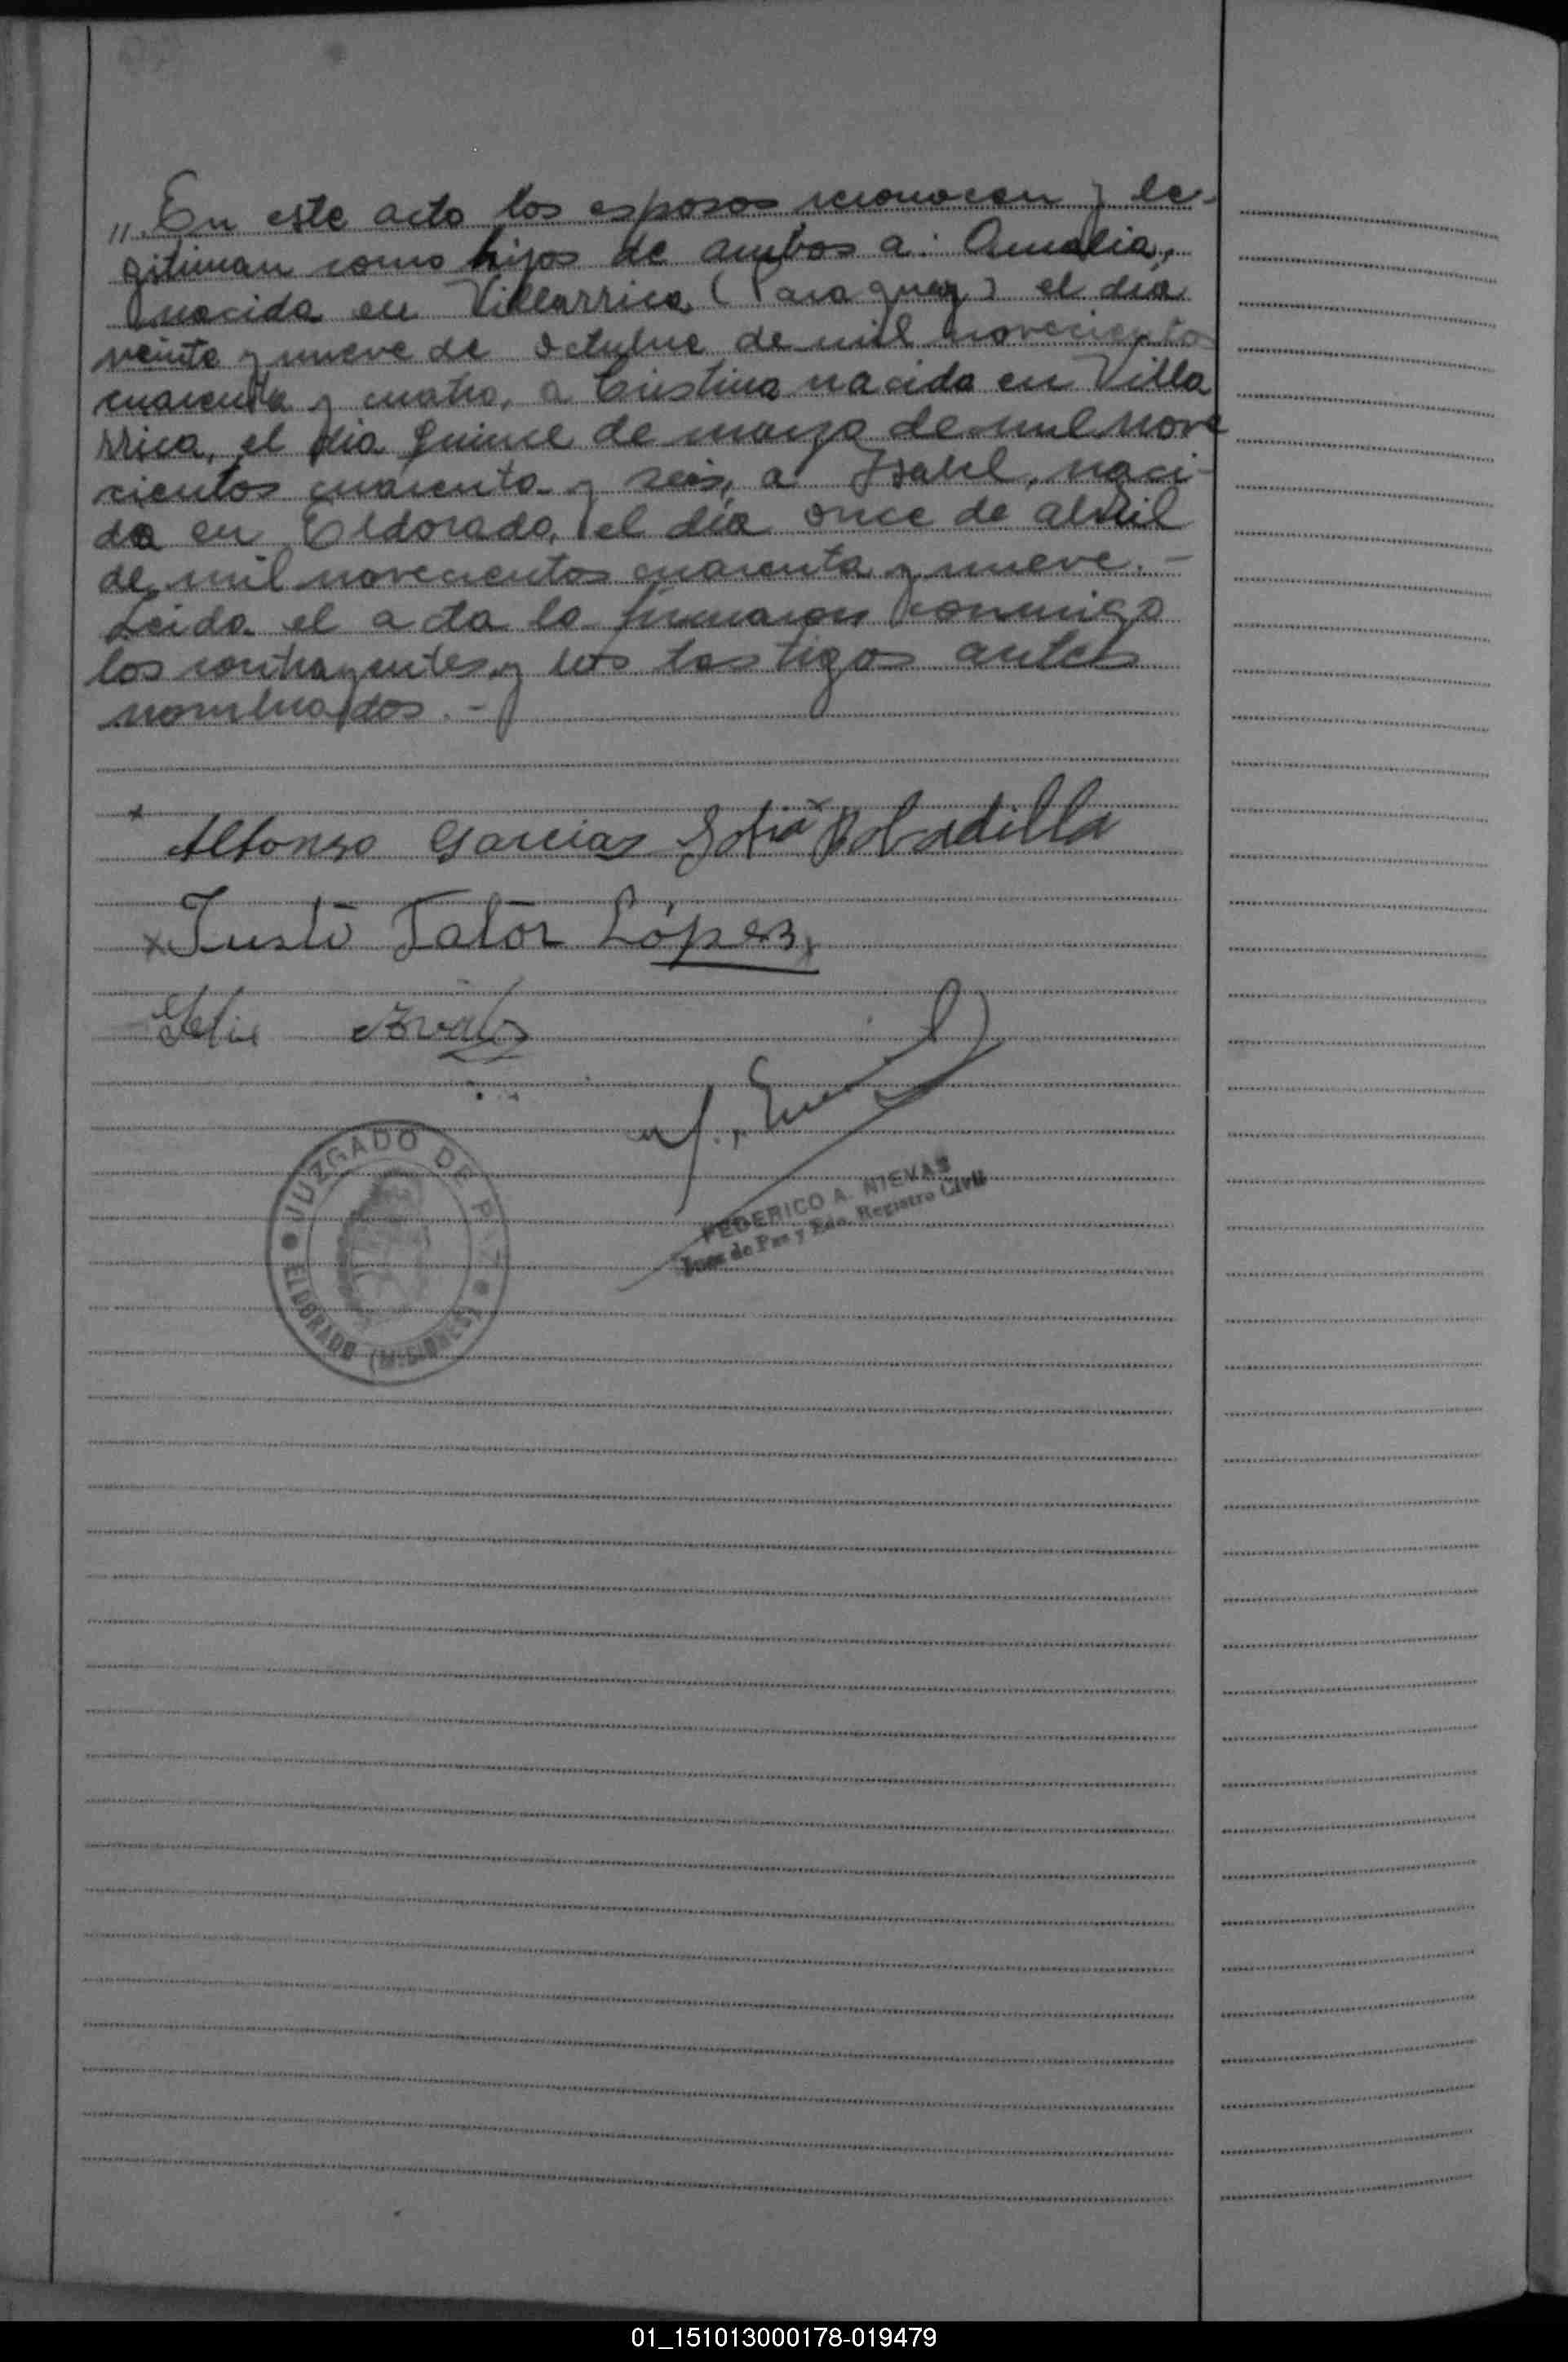 "En este acto los esposos reconocen y le-
gitiman como hijos de ambos a: Amalia,
nacida en Villarrica (Paraguay) el dia
veinte y nueve de Octubre de mil novecientos
cuarenta y cuatro, a Cristina nacida en Villa
rrica, el dia quince de marzo de mil nove
cientos cuarenta y seis, a Isabel, naci-
da en Eldorado, el día once de abril
de mil novecientos cuarenta y nueve. -
Leida el acta la firmaron conmigo
los contrayentes y los testigos antes
nombrados. -
Alfonso Garcias Sofia Bobadilla
x Justo Jator López
JUZGADO DE PAZ
ELDORADO (MISIONES)
FEDERICO A. NIEVAS
Juez de Paz y Edo. Registro Civil
01_151013000178-019479